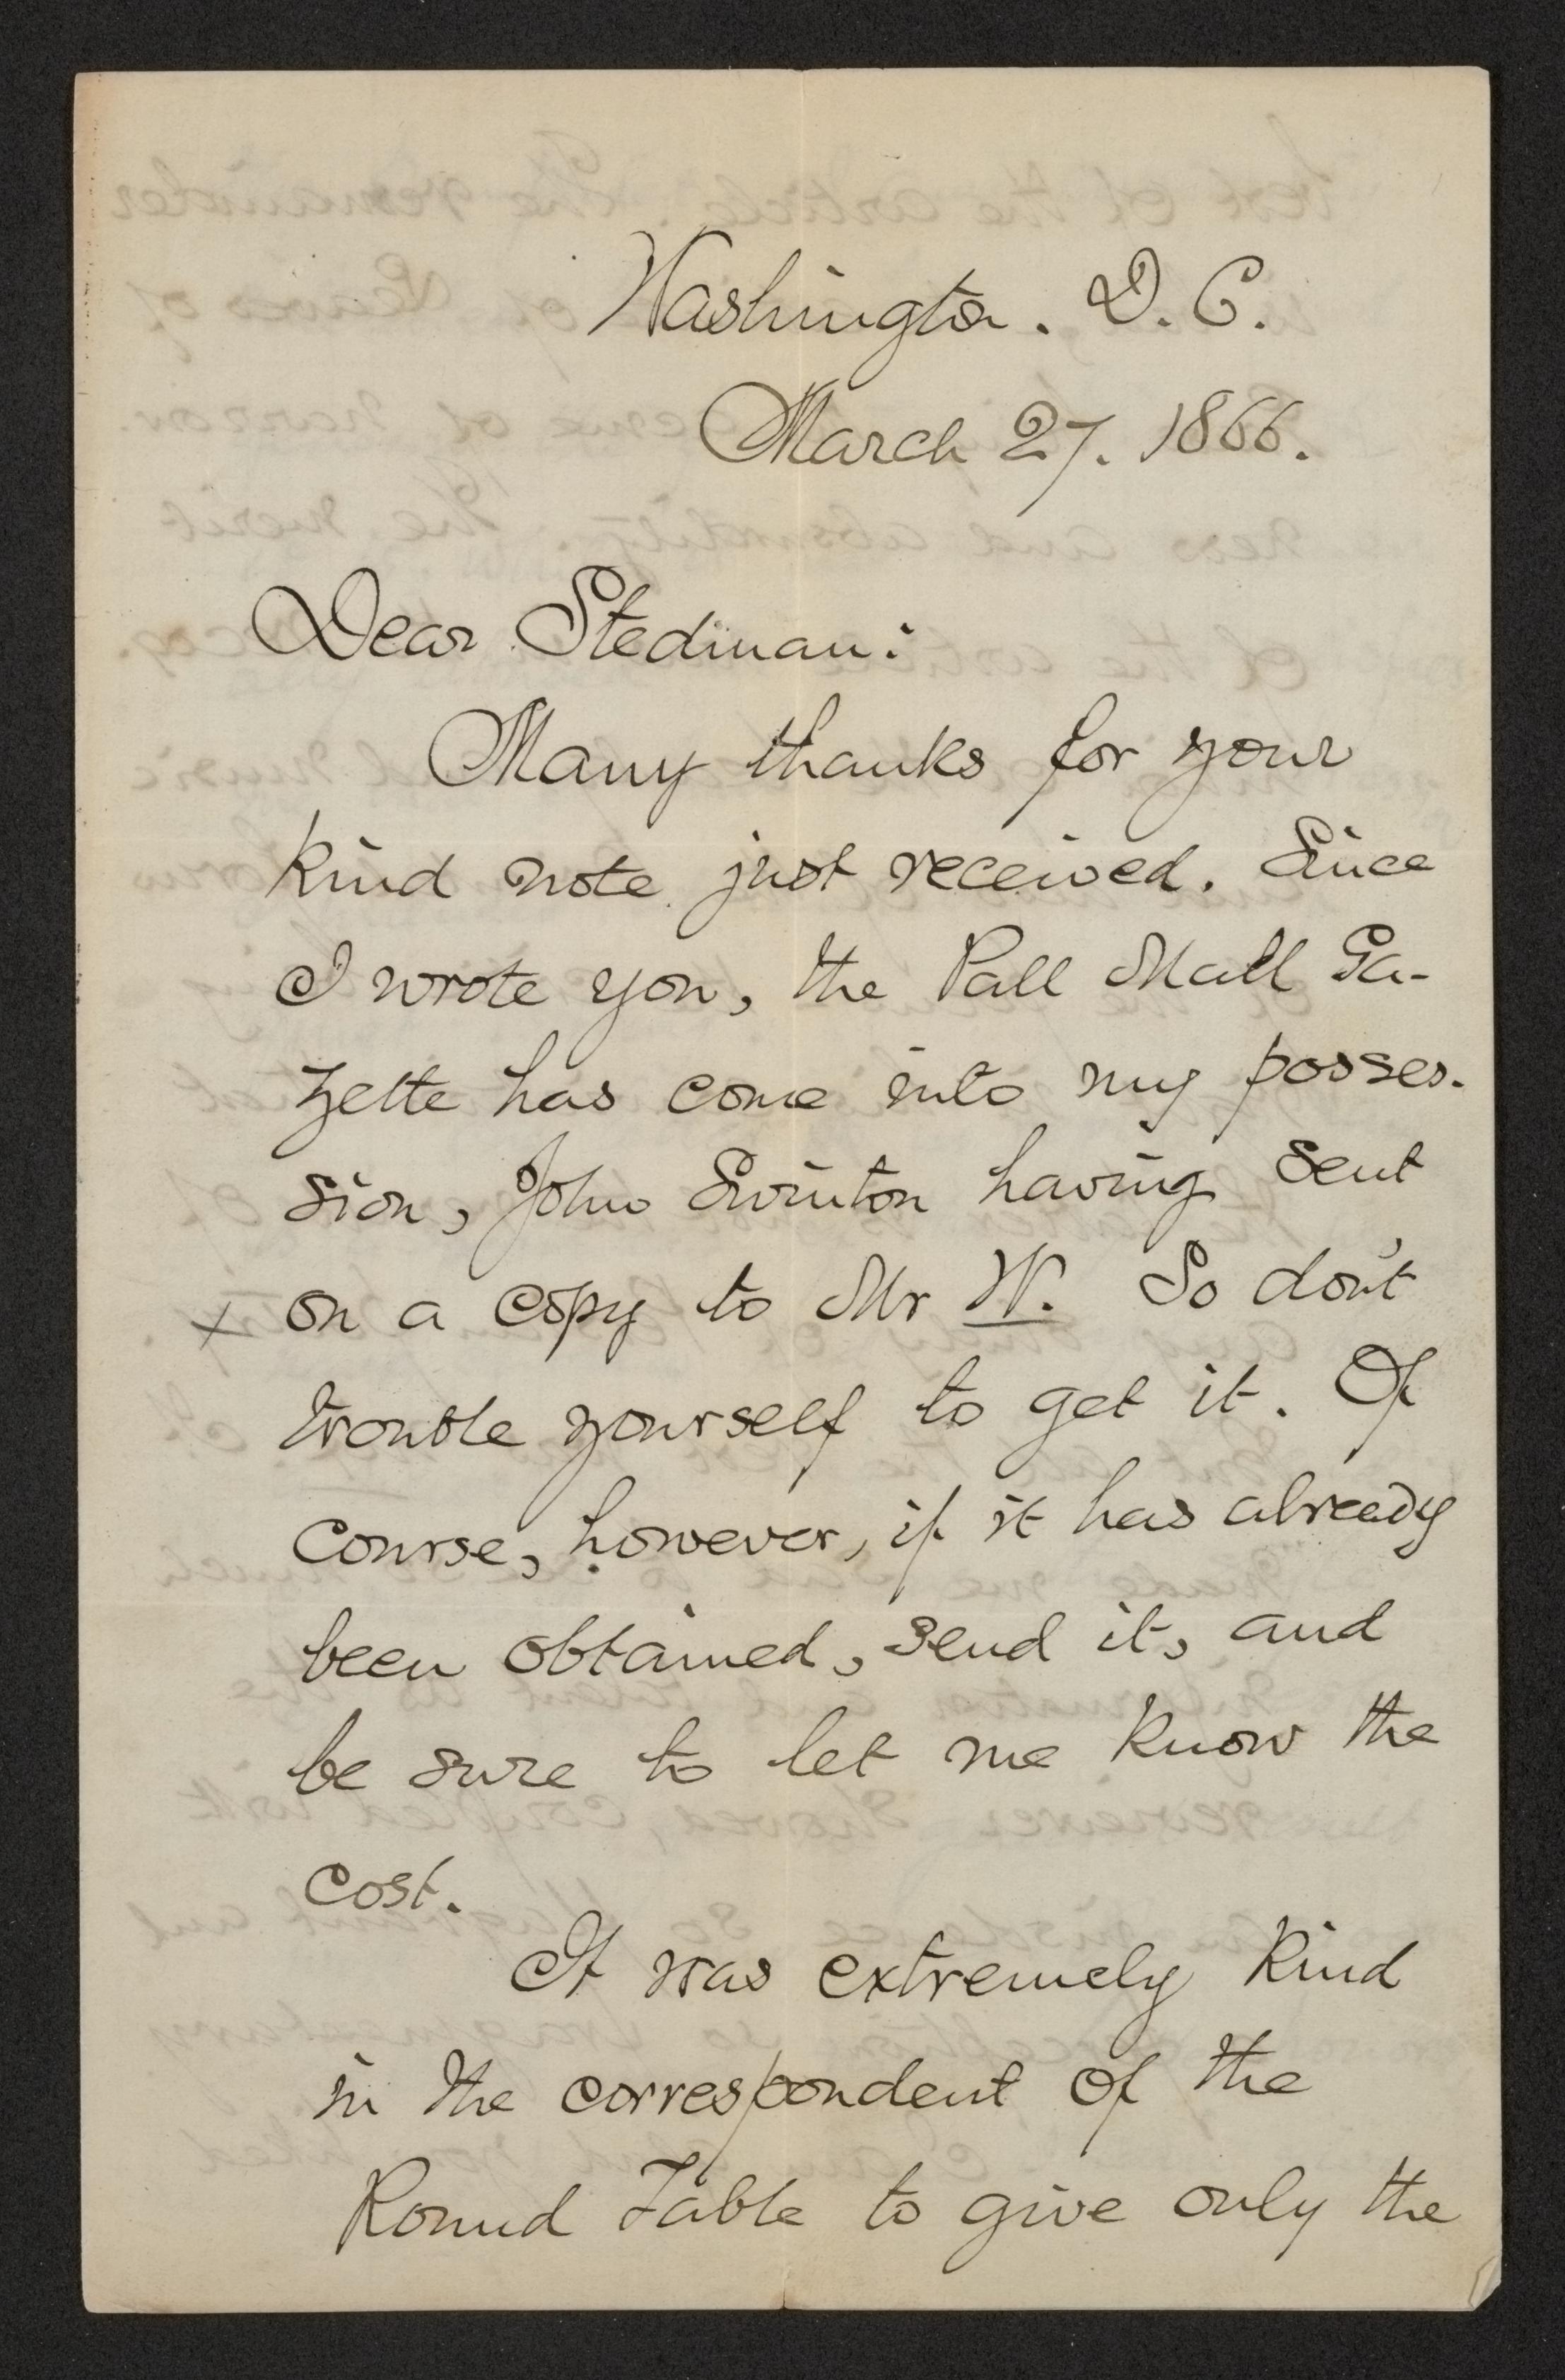 Washington. D. C.
March 27. 1866.
Dear Stedman:
Many thanks for your
kind note just received. Since
I wrote you, the Pall Mall Ga-
zette has come into my posses-
sion, John Swinton having sent
x on a copy to Mr W. So don't
trouble yourself to get it. Of
course, however, if it has already
been obtained, send it, and
be sure to let me know the
cost.
It was extremely kind
in the correspondent of the
Round Table to give only the